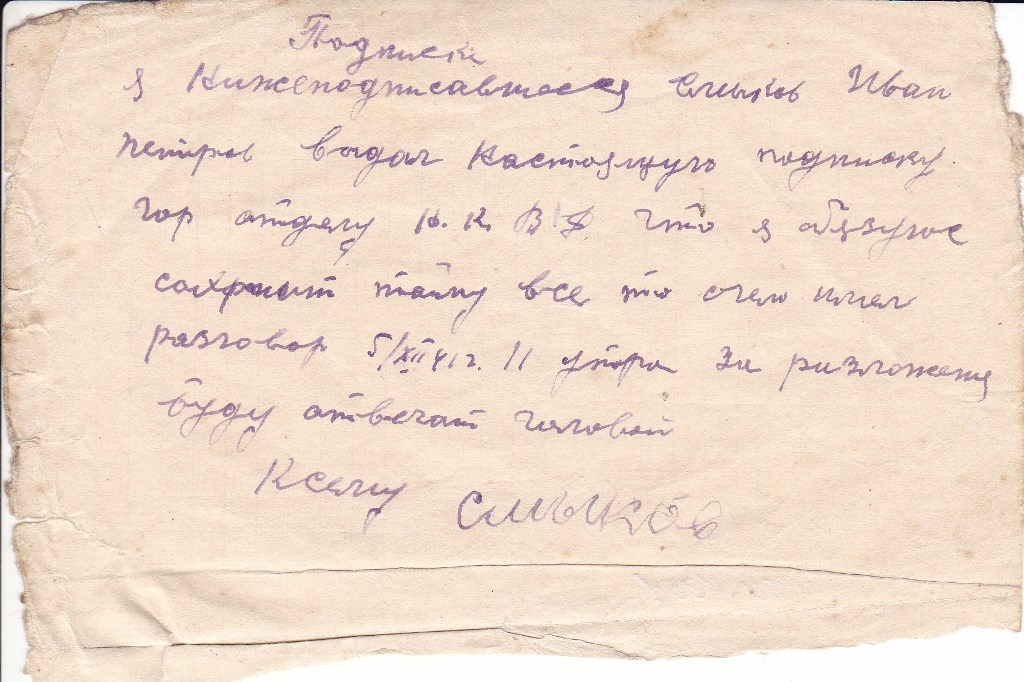 Подписка
я Нижеподписавшееся Смыков Иван
петров выдал Настоящую подписку
гор отделу Н. К. В Д. что я обязуюс
сохранит тайну все то очем имел
разговор 5/XII 41 г. 11 утра за разложения
буду отвечат головой
К сему Смыков